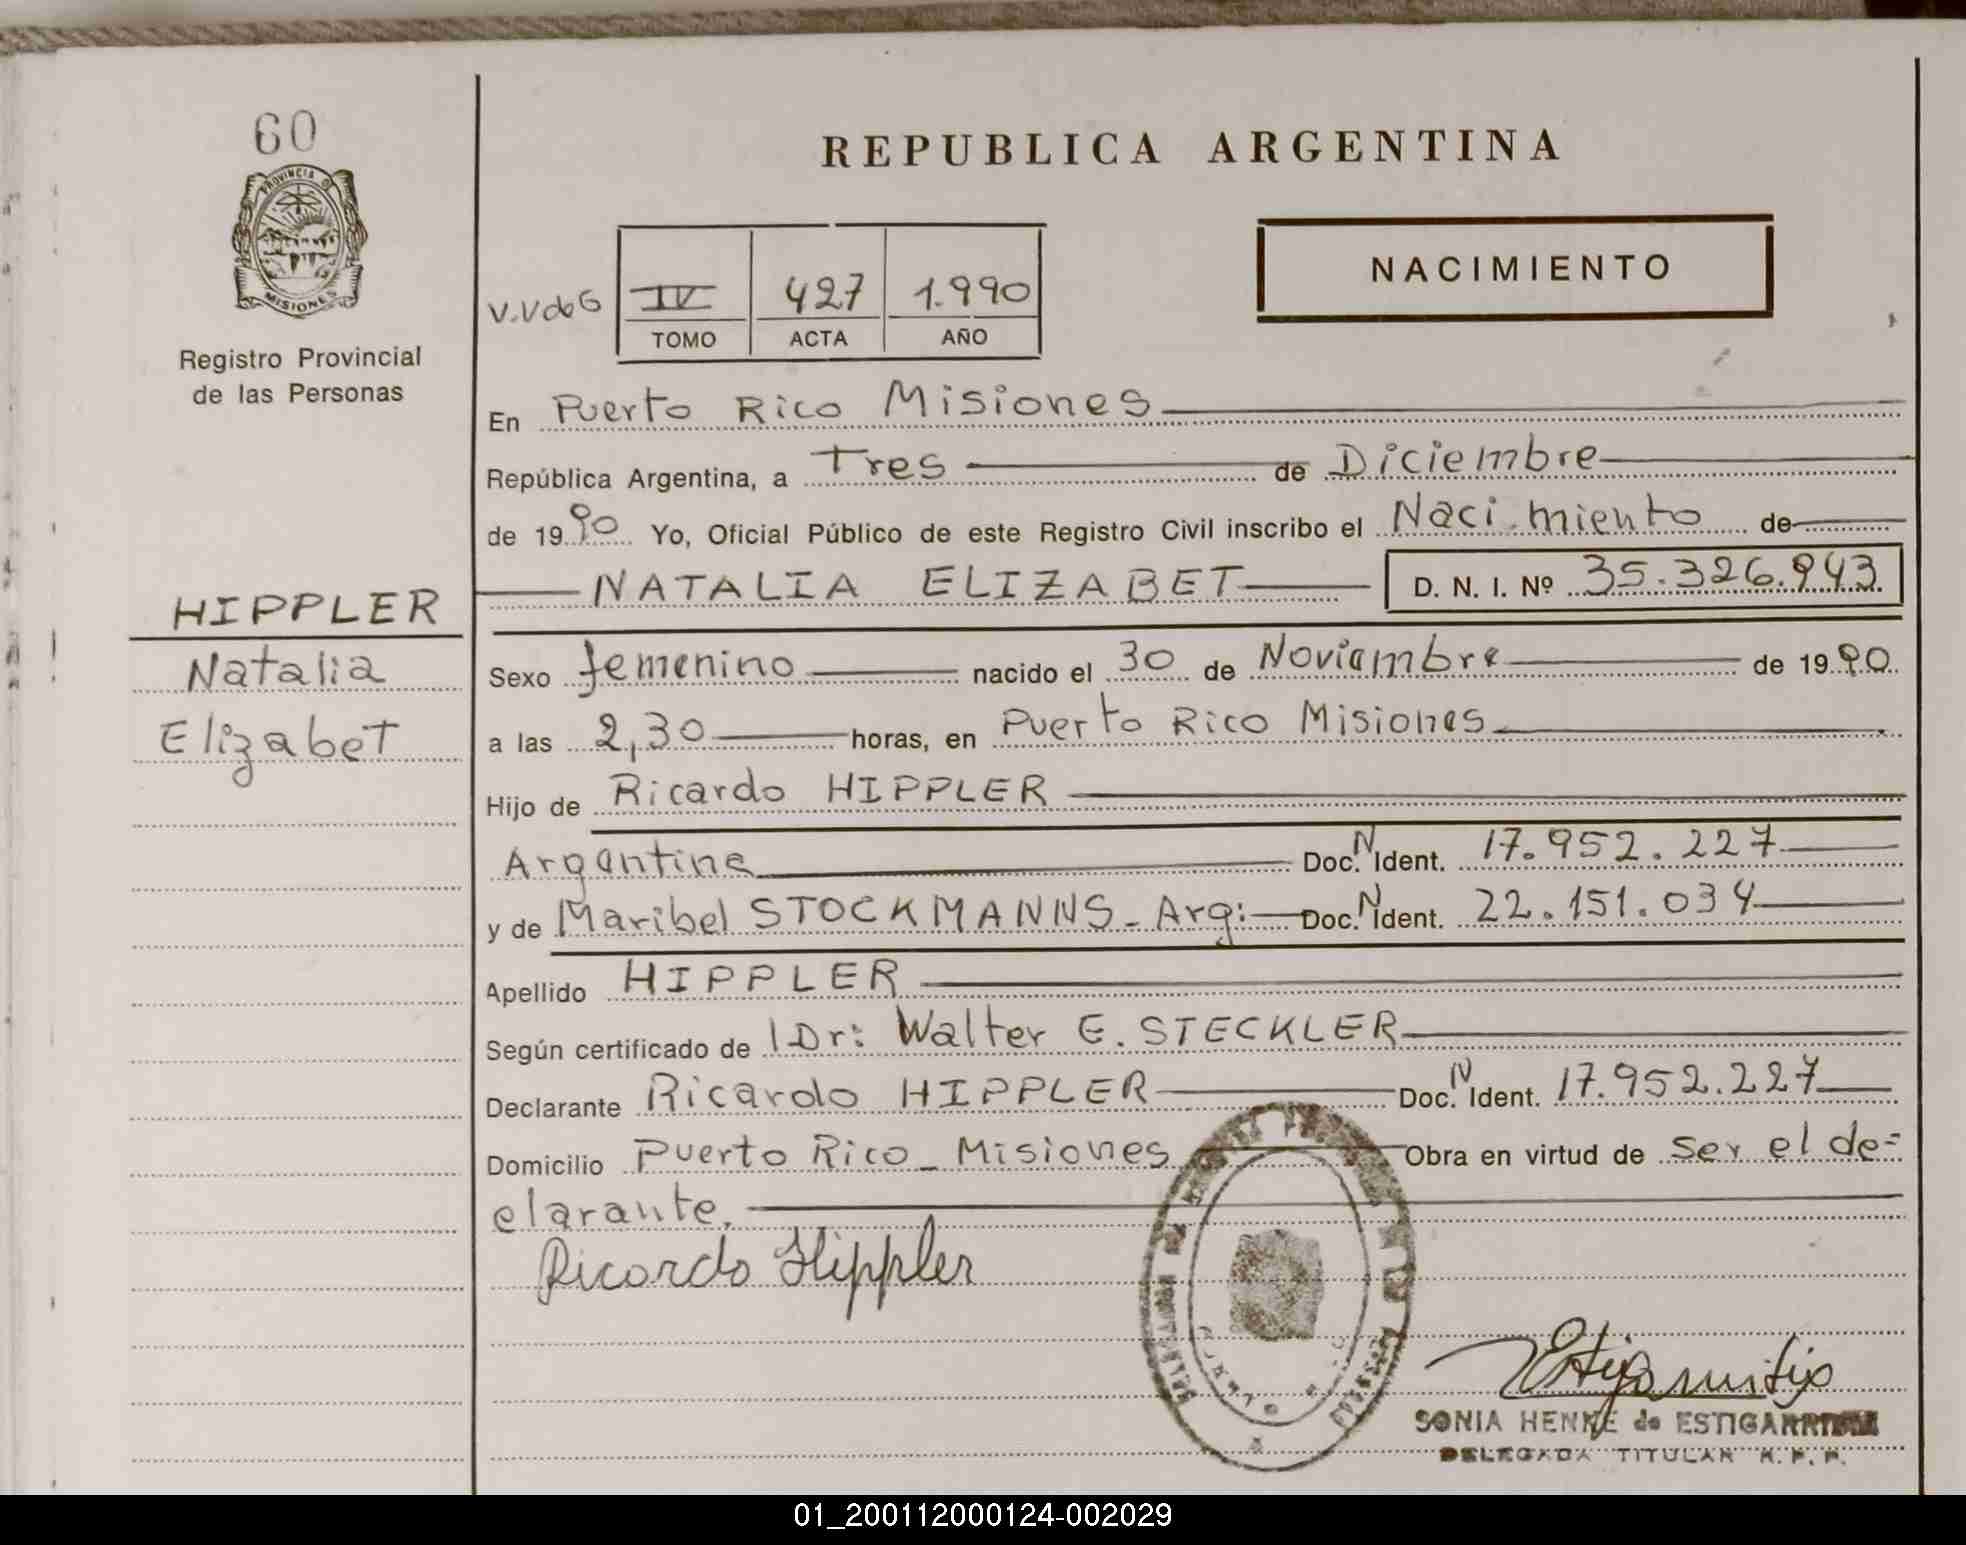 60
PROVINCIA DE
MISIONES
Registro Provincial
de las Personas
HIPPLER
Natalia
Elizabet
REPUBLICA ARGENTINA
NACIMIENTO
V.VdeG
IV 427 1.990
TOMO ACTA AÑO
En Puerto Rico Misiones
República Argentina, a Tres de Diciembre
de 1990 Yo, Oficial Público de este Registro Civil inscribo el Nacimiento de
NATALIA ELIZABET D. N. I. Nº 35.326.943
Sexo femenino nacido el 30 de Noviembre de 1990
a las 2,30 horas, en Puerto Rico Misiones
Hijo de Ricardo HIPPLER
Argentina Doc. N Ident. 17.952.227
y de Maribel STOCKMANNS - Arg: Doc. N Ident. 22.151.034
Apellido HIPPLER
Según certificado de Dr: Walter E. STECKLER
Declarante Ricardo HIPPLER Doc. N Ident. 17.952.227
Domicilio Puerto Rico - Misiones Obra en virtud de ser el de=
clarante.
Ricardo Hippler
SONIA HENNE de ESTIGARRIBIA
DELEGADA TITULAR R.P.P.
01_200112000124-002029